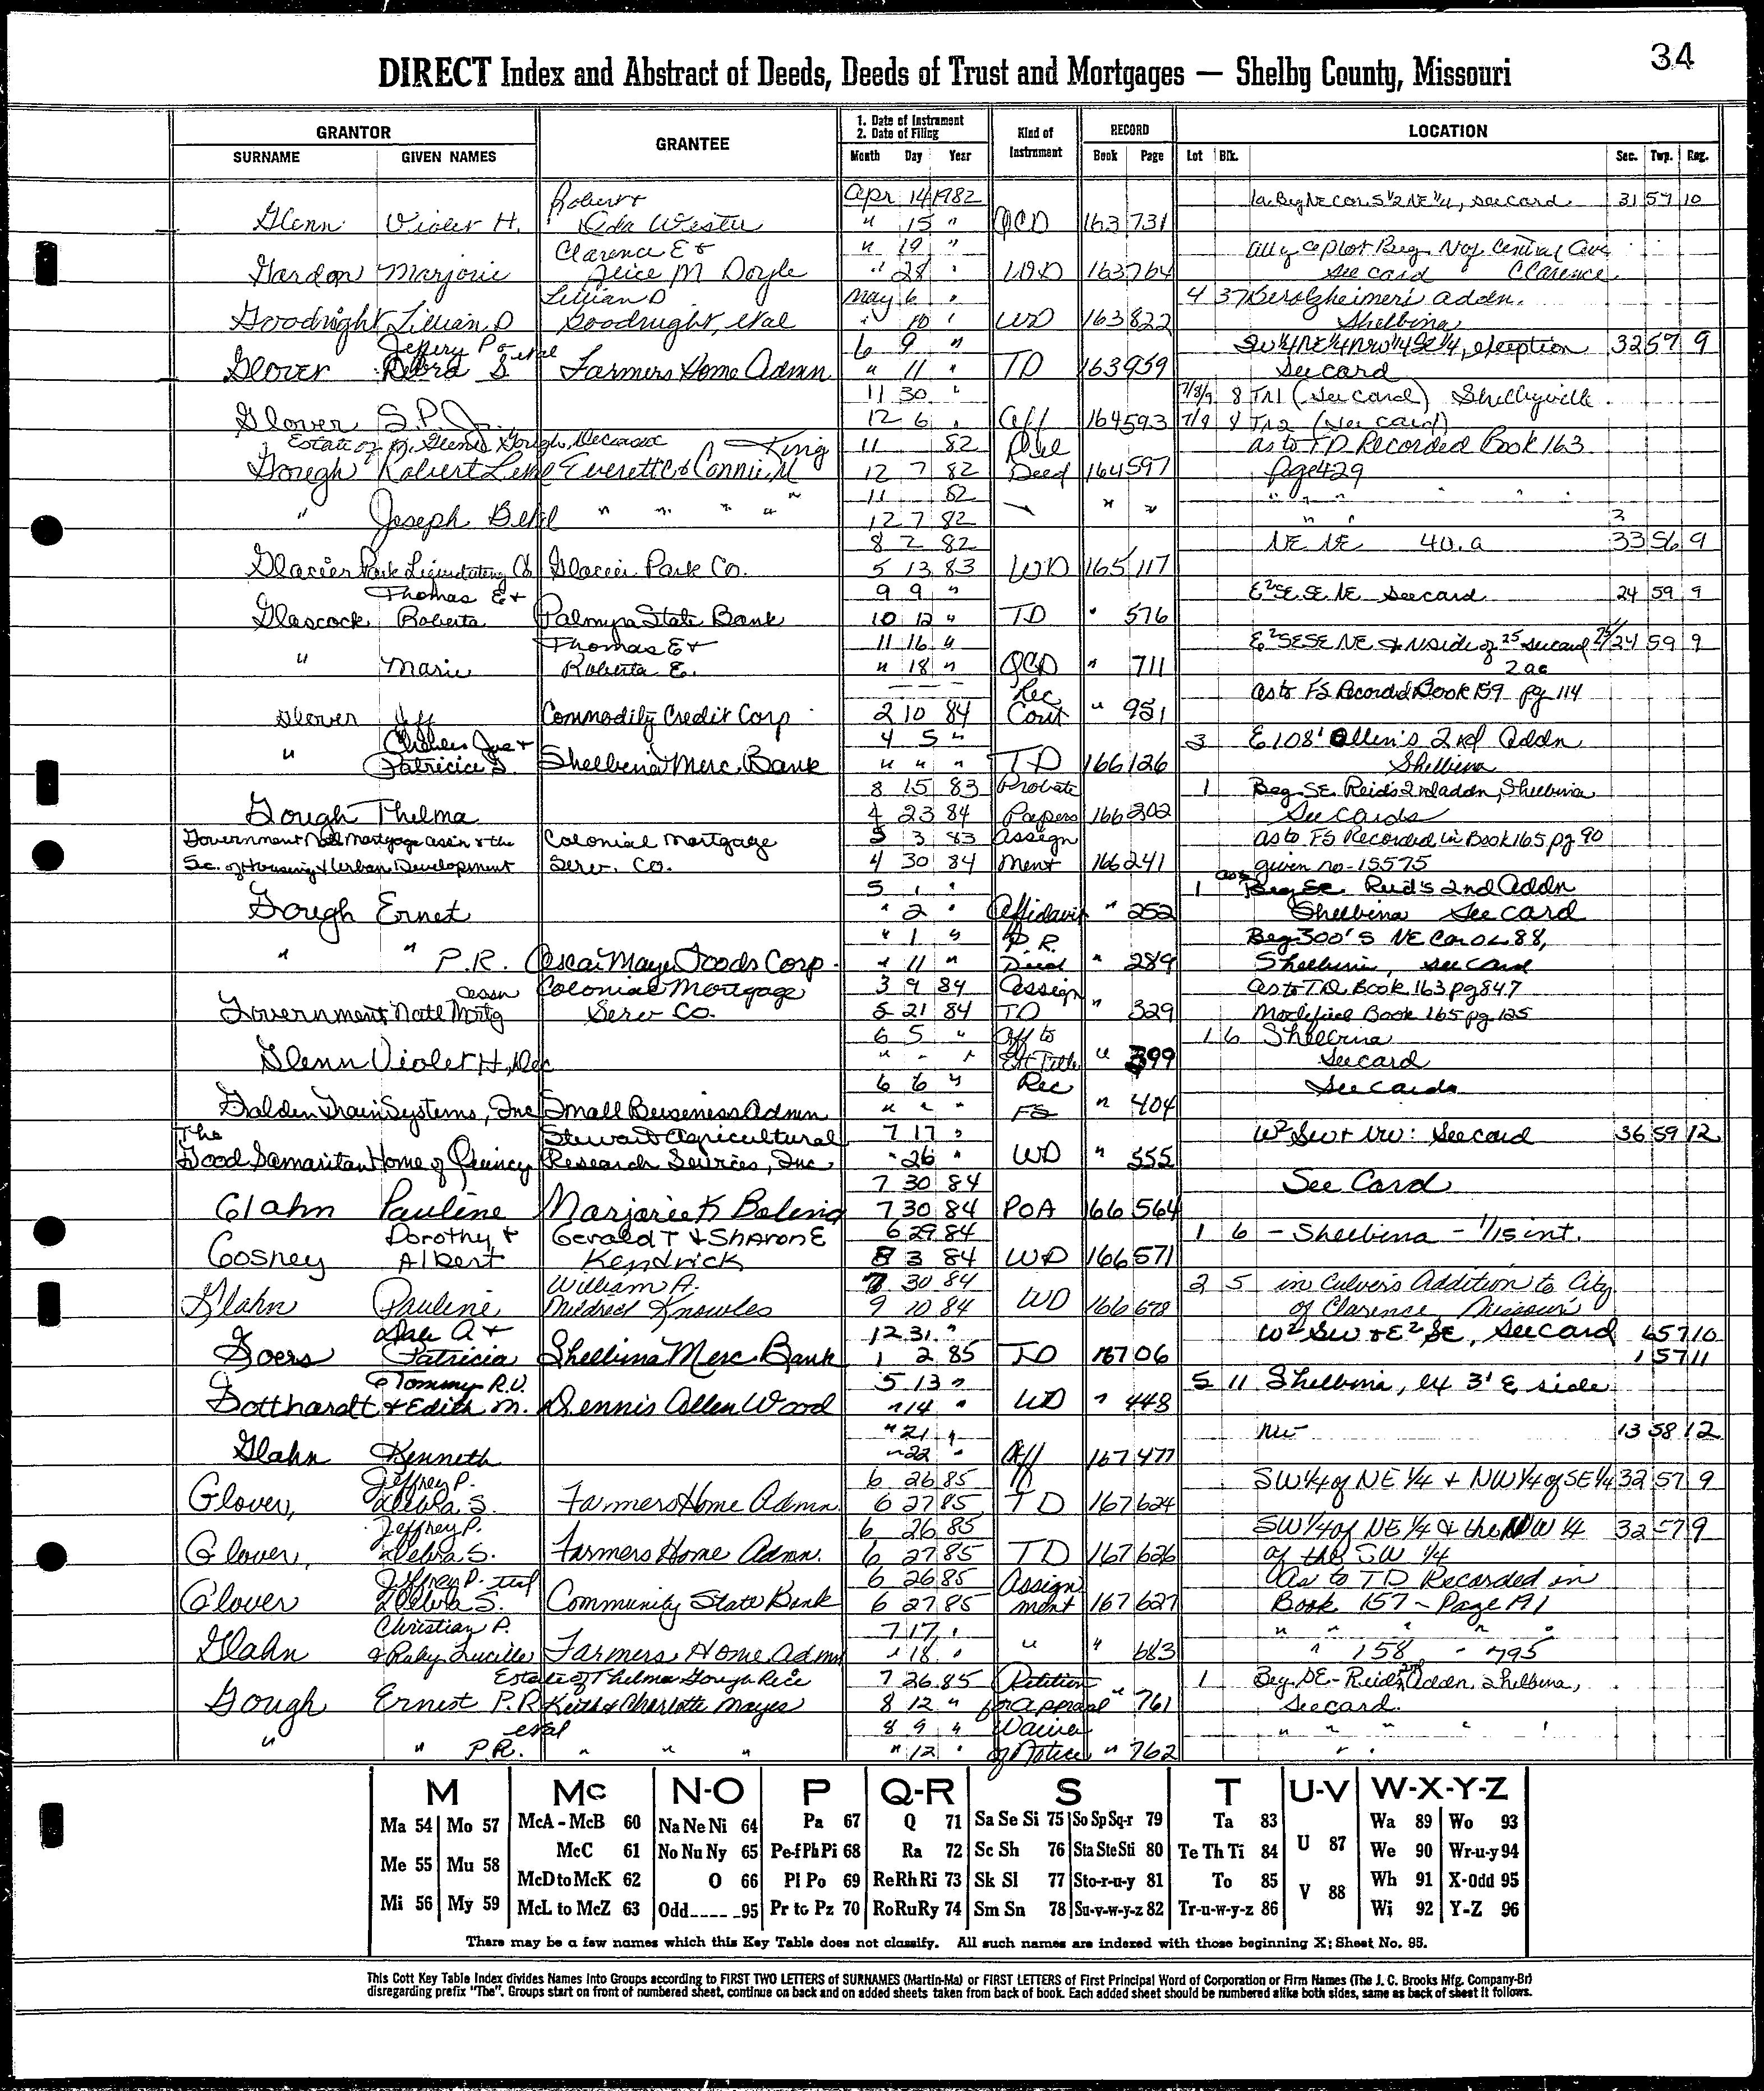 34
DIRECT Index and Abstract of Deeds, Deeds of Trust and Mortgages — Shelby County, Missouri
GRANTOR
SURNAME GIVEN NAMES
GRANTEE
1. Date of Instrument
2. Date of Filing
Month Day Year
Kind of
Instrument
RECORD
Book Page
LOCATION
Lot Blk. Sec. Twp. Rng.
Robert & Apr 14 1982 1a Beg NE cor S½ NE¼, see card 31 57 10
Glenn Violet H. " 15 " QCD 163 731
Clarence E & " 19 " Beg Central Ave
Marjorie Alice M Doyle " 28 " WD 163 764 see card Clarence
Lillian D May 6 " 4 37 Gerolzheimer's addn.
Goodnight Lillian D Goodnight, etal " 10 " WD 163 822 Shelbina
Jeffery P & etal 6 9 " SW¼ NE¼ NW¼ SE¼, exception 32 57 9
Glover Debra S Farmers Home Admn " 11 " TD 163 959 see card
11 30 " 7/8/9 8 TR1 (see card) Shelbyville
Glover S.P. Jr. 12 6 " Aff 164 593 7/8 4 TR2 (see card)
Estate of Gough, Deceased King 11 82 Rel as to TD Recorded Book 163
Gough Robert Lene Everett C & Connie M 12 7 82 Deed 164 597 page 429
11 82 " " " " "
" Joseph Bell " " " " 12 7 82 " " " "
8 2 82 NE NE 40.a 33 56 9
Glacier Park Liquidating Co Glacier Park Co. 5 13 83 WD 165 117
Thomas E & 9 9 " E²SE SE NE see card 24 59 9
Glascock Roberta Palmyra State Bank 10 12 " TD " 576
Thomas E & 11 16 " E²SESE NE & N side of 25 see card 25/24 59 9
" Marie Roberta E. " 18 " QCD " 711 2ac
Rec as to FS Recorded Book 159 pg 114
Glover Jeff Commodity Credit Corp 2 10 84 Cont " 951
Charles Joe & 4 5 " 3 E108' Allen's 2nd Addn
" Patricia S. Shelbina Merc. Bank " " " TD 166 126 Shelbina
8 15 83 Probate 1 Beg SE Reid's 2nd addn, Shelbina
Gough Thelma 4 23 84 Papers 166 202 See Cards
Government Natl Mortgage assn & the Colonial Mortgage 5 3 83 Assign as to FS Recorded in Book 165 pg 90
Sec. of Housing & Urban Development Serv. Co. 4 30 84 ment 166 241 given no-15575
5 1 " 1 Beg SE Reid's 2nd Addn
Gough Ernet " 2 " Affidavit " 252 Shelbina See card
" 1 " P.R. Beg 300' S NE Cor OL 88,
" " P.R. Oscar Mayer Foods Corp. " 11 " Deed " 289 Shelbina, see card
assn Colonial Mortgage 3 9 84 Assign as to TD Book 163 pg 847
Government Natl Mortg Serv Co. 5 21 84 TD " 329 Modified Book 165 pg 125
6 5 " Aff to 1 6 Shelbina
Glenn Violet H, Dec " " " Est Title " 399 See card
6 6 " Rec See Cards
Golden Train Systems, Inc Small Business Admn " " " FS " 404
The Stewart Agricultural 7 17 " W² SW & NW: See card 36 59 12
Good Samaritan Home of Quincy Research Services, Inc. " 26 " WD " 555
7 30 84 See Card
Glahn Pauline Marjorie K Boling 7 30 84 POA 166 564
Dorothy & Gerald T & Sharon E 6 29 84 1 6 - Shelbina - 1/15 int.
Gosney Albert Kendrick 8 3 84 WD 166 571
William A. 7 30 84 2 5 in Culver's Addition to City
Glahn Pauline Mildred Knowles 9 10 84 WD 166 678 of Clarence, Missouri
Dale A & 12 31 " W² SW & E² SE, see card 6 57 10
Goers Patricia Shelbina Merc Bank 1 2 85 TD 167 06 1 57 11
Tommy R.V. 5 13 " 5 11 Shelbina, ex 3' E side
Gotthardt & Edith M. Dennis Allen Wood " 14 " WD " 448
" 21 " NW 13 58 12
Glahn Kenneth " 22 " Aff 167 477
Jeffrey P. 6 26 85 SW¼ of NE ¼ & NW¼ of SE¼ 32 57 9
Glover, Debra S. Farmers Home Admn. 6 27 85 TD 167 624
Jeffrey P. 6 26 85 SW¼ of NE ¼ & the NW ¼ 32 57 9
Glover, Debra S. Farmers Home Admn. 6 27 85 TD 167 626 of the SW ¼
Jeffrey P. 6 26 85 Assign As to TD Recorded in
Glover Debra S. Community State Bank 6 27 85 ment 167 627 Book 157 - Page 191
Christian P. 7 17 " " " " " "
Glahn & Ruby Lucille Farmers Home Admn " 18 " " " 683 " 158 - 795
Estate of Thelma Gough Rice 7 26 85 Petition 1 Beg. SE - Reid's 2nd addn, Shelbina,
Gough Ernest P.R. Keith & Charlotte Mayes 8 12 " for Appraisal " 761 See card.
etal 8 9 " Waiver " " " " "
" " P.R. " " " " 12 " of Notice " 762 " "
M Mc N-O P Q-R S T U-V W-X-Y-Z
Ma 54 Mo 57 McA - McB 60 Na Ne Ni 64 Pa 67 Q 71 Sa Se Si 75 So Sp Sq-r 79 Ta 83 Wa 89 Wo 93
Me 55 Mu 58 McC 61 No Nu Ny 65 Pe-f Ph Pi 68 Ra 72 Sc Sh 76 Sta Ste Sti 80 Te Th Ti 84 U 87 We 90 Wr-u-y 94
McD to McK 62 O 66 Pl Po 69 Re Rh Ri 73 Sk Sl 77 Sto-r-u-y 81 To 85 V 88 Wh 91 X-Odd 95
Mi 56 My 59 McL to McZ 63 Odd_____95 Pr to Pz 70 Ro Ru Ry 74 Sm Sn 78 Su-v-w-y-z 82 Tr-u-w-y-z 86 Wi 92 Y-Z 96
There may be a few names which this Key Table does not classify. All such names are indexed with those beginning X; Sheet No. 95.
This Cott Key Table Index divides Names into Groups according to FIRST TWO LETTERS of SURNAMES (Martin-Ma) or FIRST LETTERS of First Principal Word of Corporation or Firm Names (The J. C. Brooks Mfg. Company-Br)
disregarding prefix "The". Groups start on front of numbered sheet, continue on back and on added sheets taken from back of book. Each added sheet should be numbered alike both sides, same as back of sheet it follows.